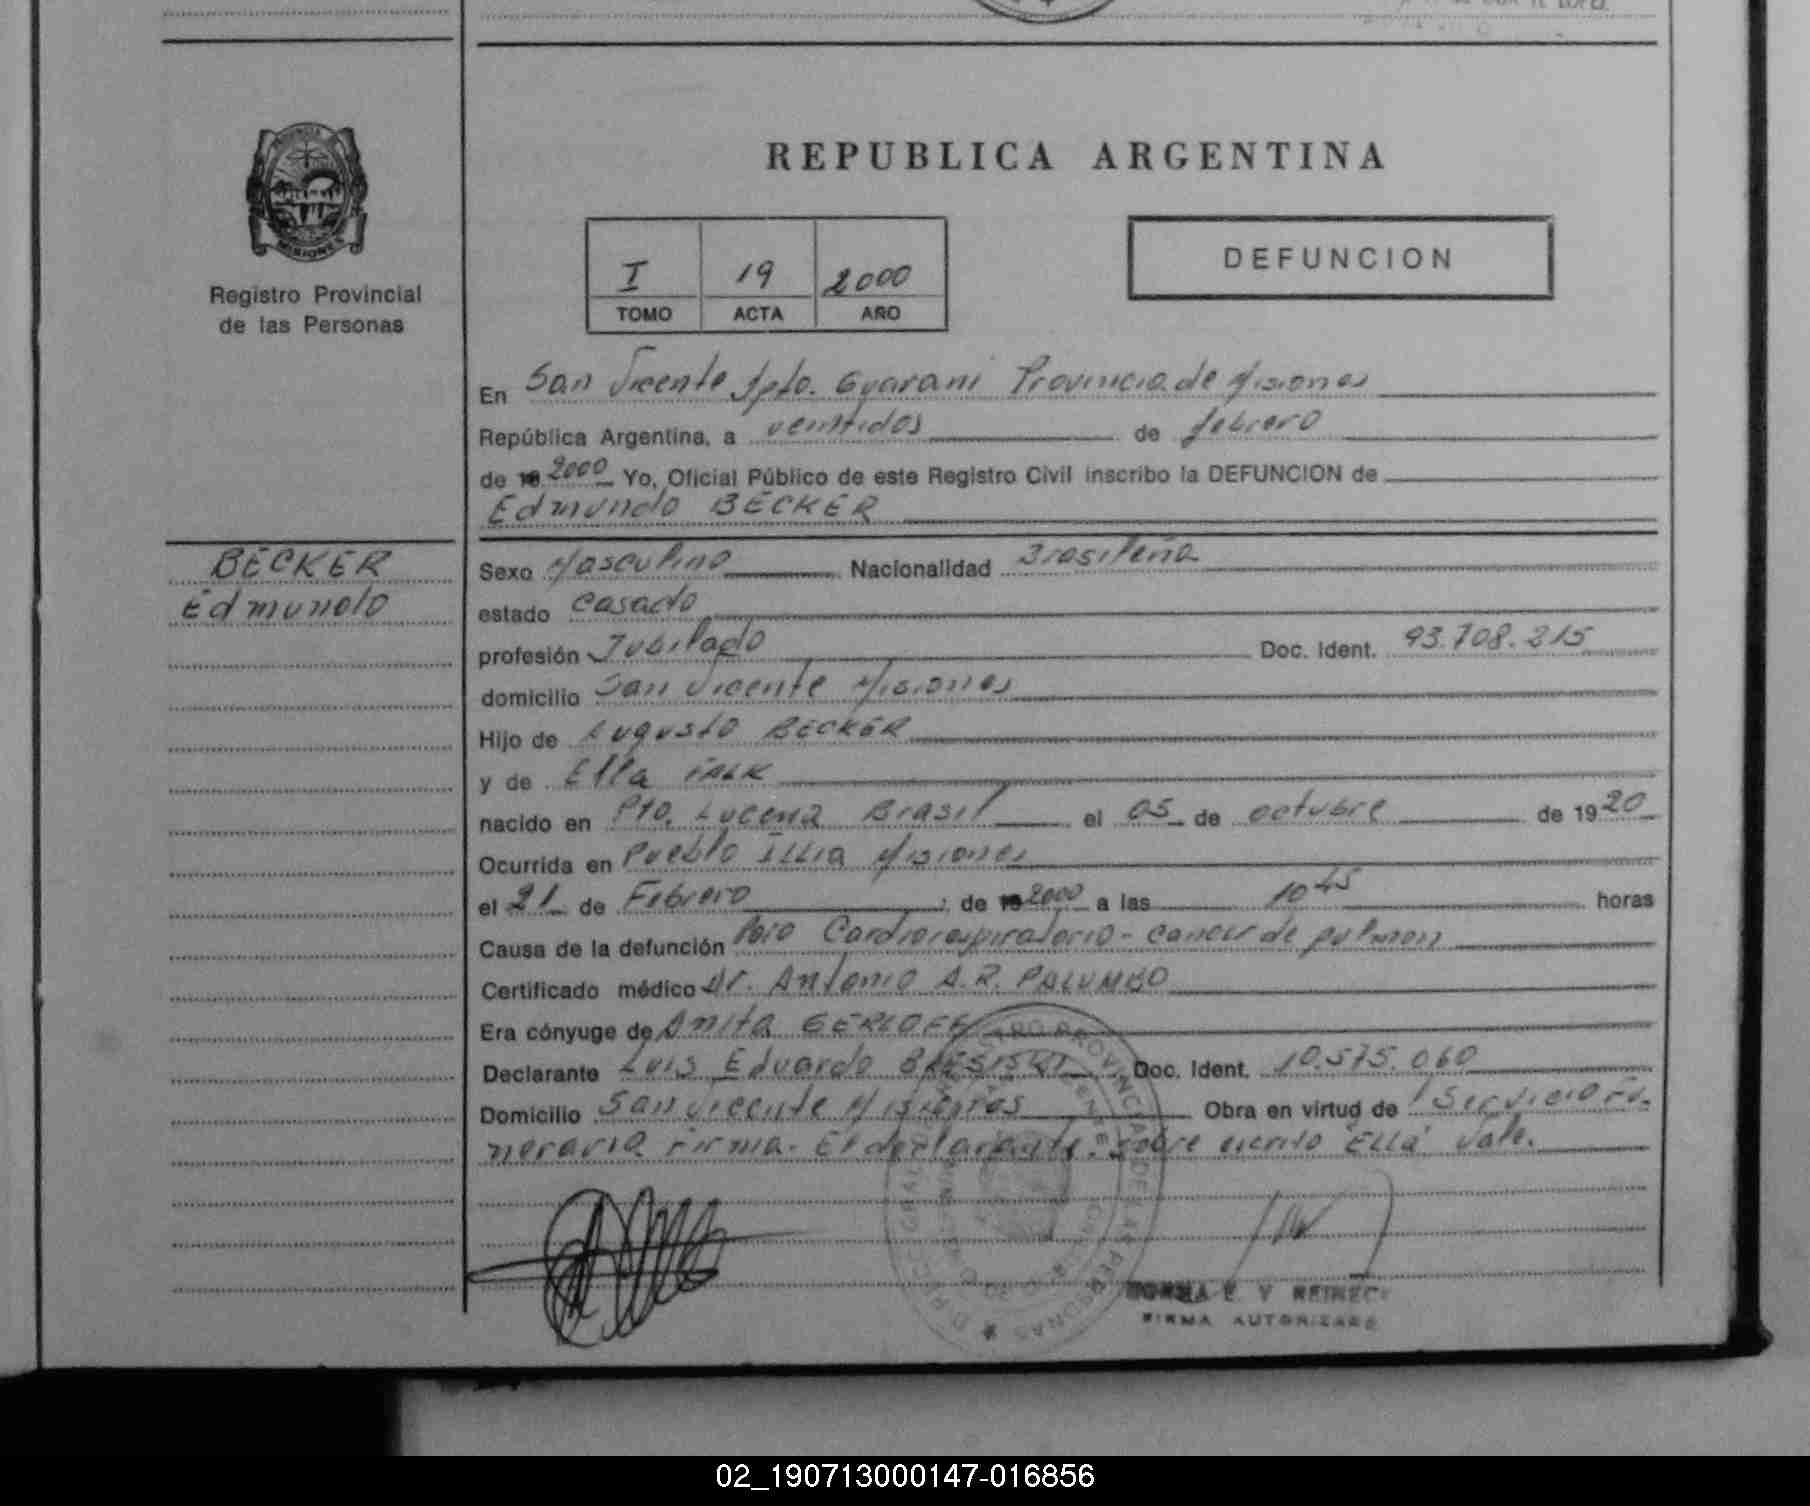 REPUBLICA ARGENTINA
MISIONES
Registro Provincial
de las Personas
I 19 2000
TOMO ACTA AÑO
DEFUNCION
En San Vicente Dpto. Guarani Provincia de Misiones
República Argentina, a veintidos de febrero
de 19 2000 Yo, Oficial Público de este Registro Civil inscribo la DEFUNCION de
Edmundo BECKER
BECKER
Edmundo
Sexo Masculino Nacionalidad Brasileña
estado Casado
profesión Jubilado Doc. Ident. 93.708.215
domicilio San Vicente Misiones
Hijo de Augusto BECKER
y de Ella FALK
nacido en Pto. Lucena Brasil el 05 de octubre de 1920
Ocurrida en Pueblo Illia Misiones
el 21 de Febrero de 19 2000 a las 10 45 horas
Causa de la defunción Paro Cardiorespiratorio - cancer de pulmon
Certificado médico Dr. Antonio A.R. PALUMBO
Era cónyuge de Anita GERLOFF
Declarante Luis Eduardo Doc. Ident. 10.575.060
Domicilio San Vicente Misiones Obra en virtud de Servicio Fu-
neraria Firma. El declarante. Sobre escrito "Ella" Vale.
FIRMA AUTORIZADA
02_190713000147-016856